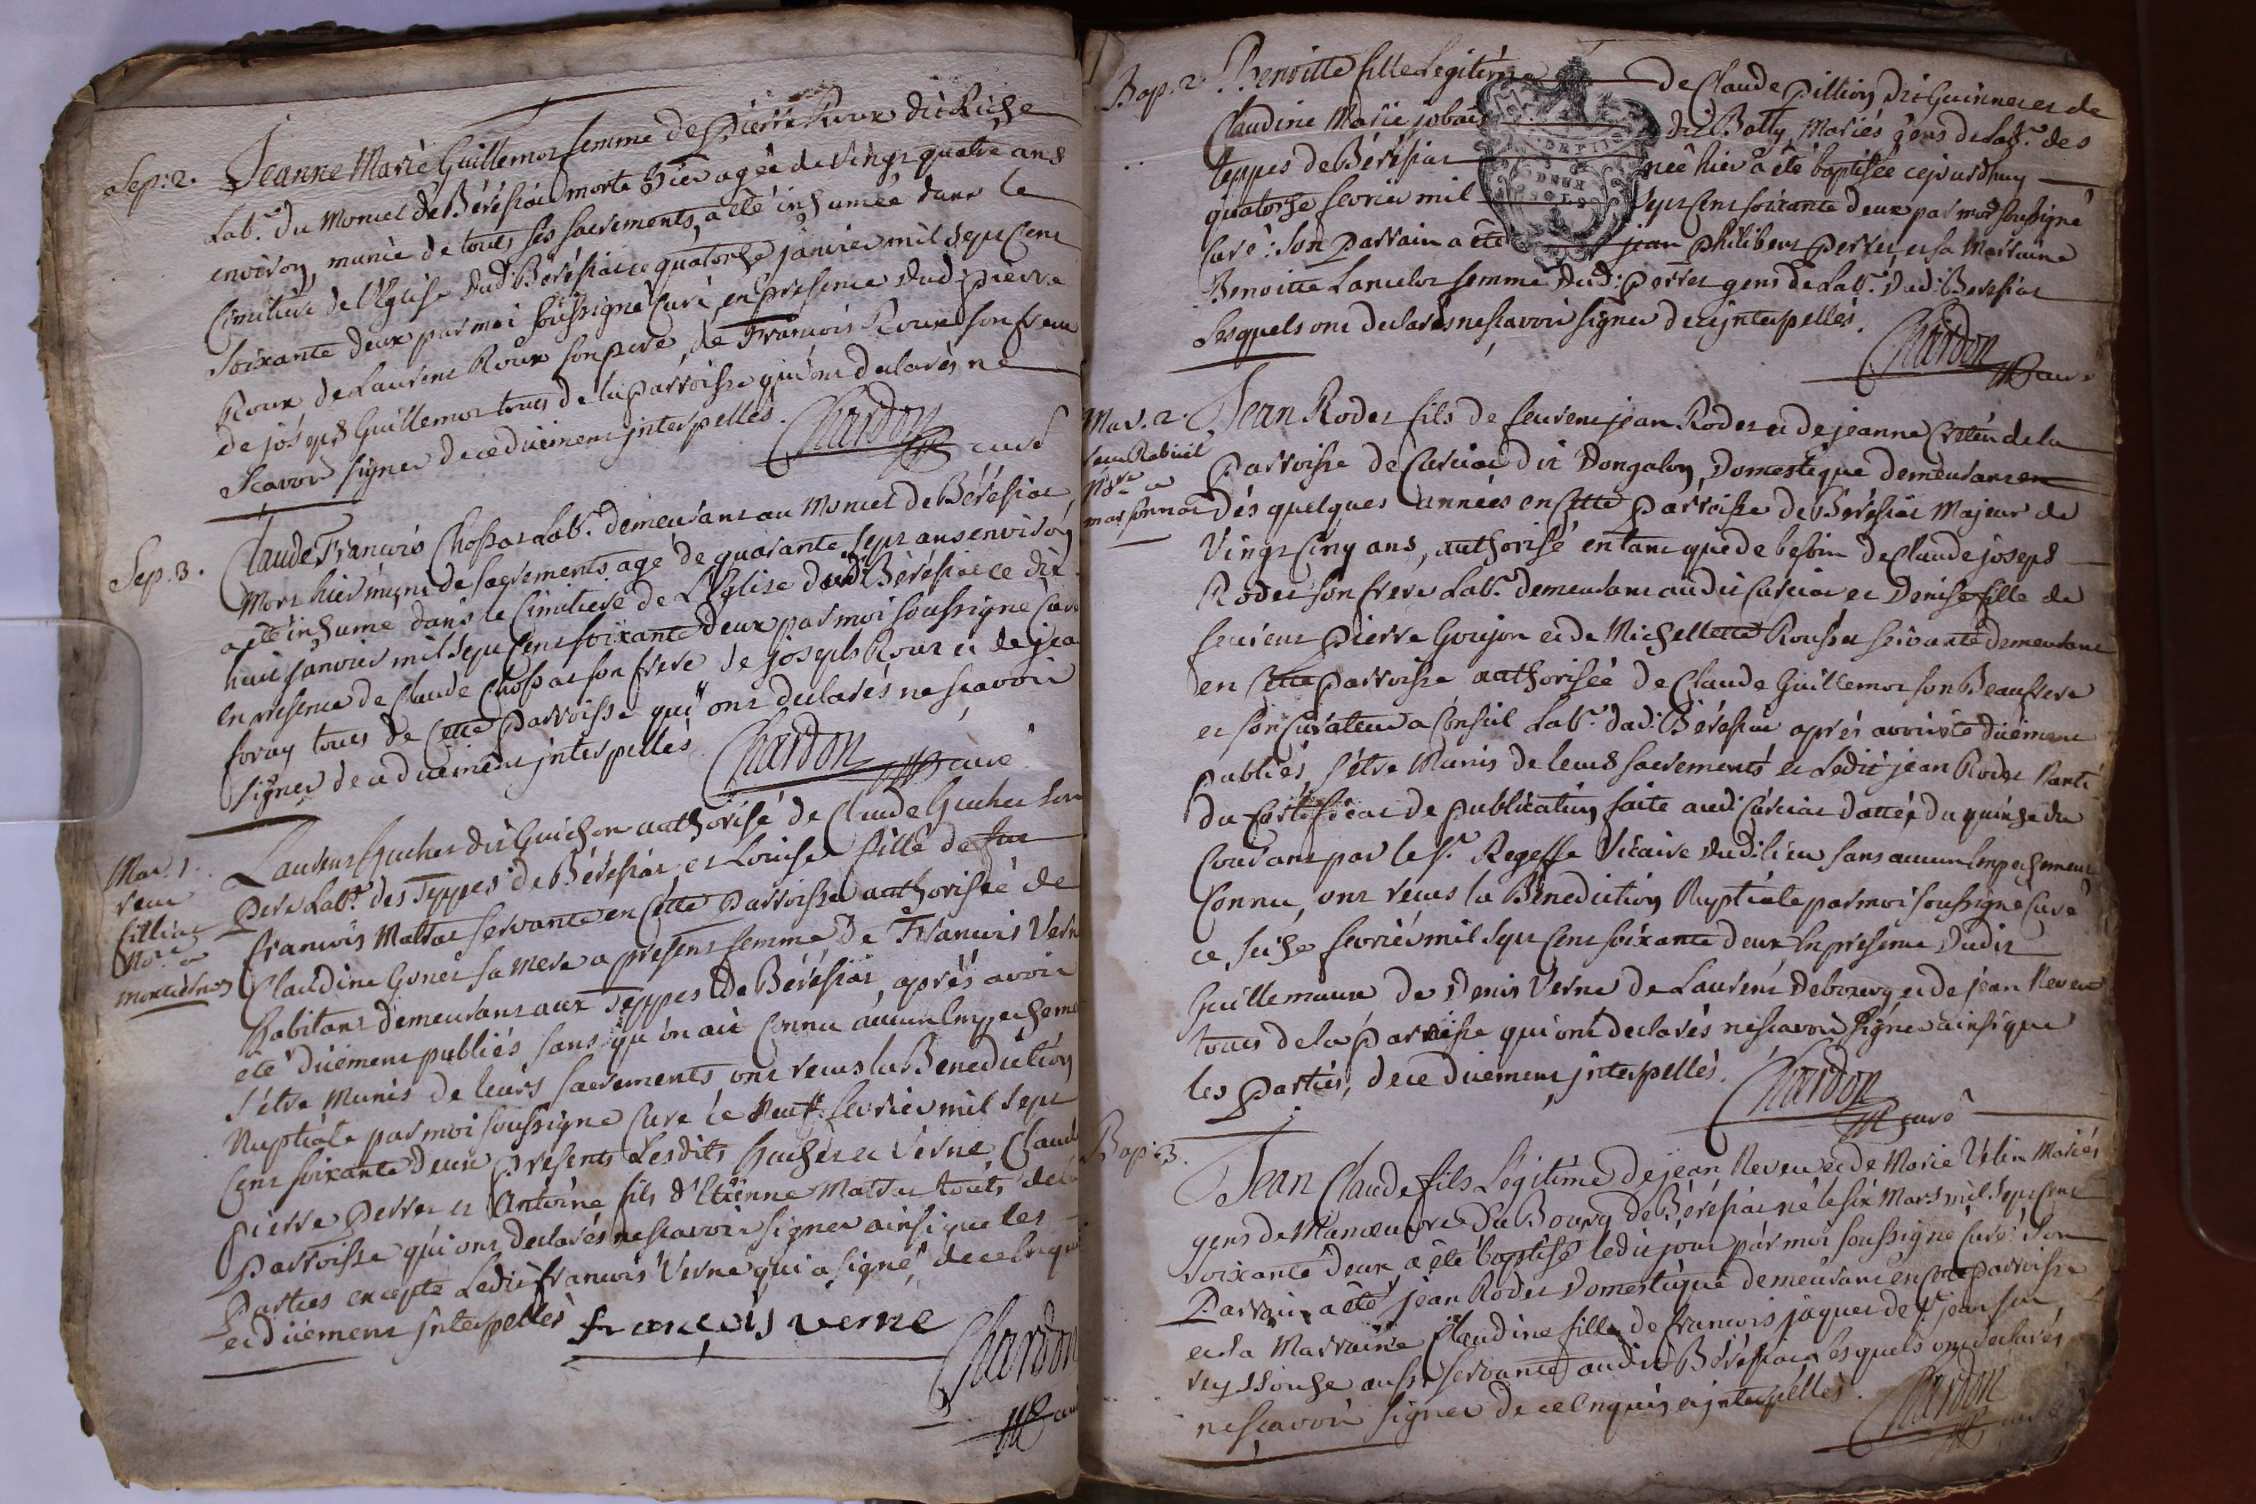 Sep: 2. Jeanne Marie Guillemot femme de Pierre Roux dit Riche
Lab.r du Moncet de Bérésiat morte hier agée de vingt quatre ans
environ, munie de tous ses sacrements, a été inhumée dans le
Cimitiere de l'Eglise dud: Béréziat ce quatorze janvier mil sept cent
soixante deux par moi soussigné Curé, en presence dud: pierre
Roux de Laurent Roux son pere, de Francois Roux son frere
de joseph Guillemot tous de la parroisse qui ont declarés ne
scavoir signer de ce duement interpellés. Chardon curé
Sep. 3. Claude Francois Chossat Lab.r demeurant au Moncet de Béréziat
Mort hier muni de sacrements agé de quarante sept ans environ
a été inhumé dans le Cimitiere de L'Eglise dud: Béréziat ce dix
huit janvier mil sept cent soixante deux par moi soussigné Curé
en presence de Claude Chossat son frere de joseph Roux et de jean
foray tous de cette parroisse qui ont declarés ne scavoir
signer de ce duement interpellés Chardon curé
Mar. 1. Laurent Guchet dit Guichon authorisé de Claude Guchet son
Pere Lab.r des Teppes de Béréziat, et Louise fille de feu
francois Matrat servante en cette parroisse authorisée de
Claudine Gonet sa mere a present femme de Francois Verne
habitant demeurant aux Teppes de Béréziat, aprés avoir
été duement publiés sans qu'on ait connu aucun Empecheme
s'étre munis de leurs sacrements, ont recus la Benediction
Nuptiale par moi soussigné Curé le Neuf fevrier mil sept
Cent soixante deux presents Lesdits Guchet et Verne, Claude
pierre perret et Antoine fils d'Etienne Matrat touts de la
parroisse qui ont declarés ne scavoir signer ainsi que les
Parties excepté Ledit francois Verne qui a signé, de ce Enquis
et duement interpellés francois verne
Chardon
Bap. 2. Benoitte fille Legitime de Claude Pillion dit Guinnet et de
Claudine Marie jobard dit Botty Mariés gens de Lab.r des
teppes de Béréziat née hier a été baptisée cejourdhuy
quatorze fevrier mil sept cent soixante deux par moi soussigné
Curé: son parrain a été jean philibert perret et sa Marraine
Benoitte Lancelot femme dud: perret gens de Lab.r dud: Beresiat
Lesquels ont declarés ne scavoir signer de ce interpellés.
Chardon curé
Mar. 2. Jean Rodet fils de feu jean Rodet et de jeanne Creteu de la
parroisse de Curciat dit Dongalon, Domestique demeurant en
dés quelques années en cette parroisse de Béréziat Majeur de
Vingt Cinq ans, authorisé en tant que de besoin de Claude joseph
Rodet son frere Lab.r demeurant audit Curciat et Denise fille de
feu pierre Goujon et de Michellette Rousset servante demeurant
en cette parroisse authorisée de Claude Guillemot son Beaufrere
et son Curateur a Conseil Lab.r dud: Béréziat aprés avoir été duement
publiés s'étre Munis de leurs sacrements et Ledit jean Rodet Nanti
du Certificat de publication faite aud: Curciat dattée du quinze du
Courant par le s.r Regeffe Vicaire dud: lieu sans aucun Empechement
Connu, ont recus la Benediction Nuptiale par moi soussigné Curé
ce seize fevrier mil sept Cent soixante deux, En presence dudit
Guillemaut de Denis Verne de Laurent Debourg et de jean Neveu
tous de la parroisse qui ont declarés ne scavoir signer ainsi que
les parties, de ce duement interpellés. Chardon
curé
Bap: 3. Jean Claude fils Legitime de jean Neveu et de Marie Vélin Mariés
gens de Manoeuvre du Bourg de Béréziat né le six Mars mil sept Cent
soixante deux a été baptisé ledit jour par moi soussigné Curé: son
Parrain a été jean Rodet Domestique demeurant en cette parroisse
et sa Marraine Claudine fille de francois jaquet de s.t jean sur
reyssouze aussi servante audit Béréziat Lesquels ont declarés
ne scavoir signer de ce Enquis et interpellés. Chardon
curé